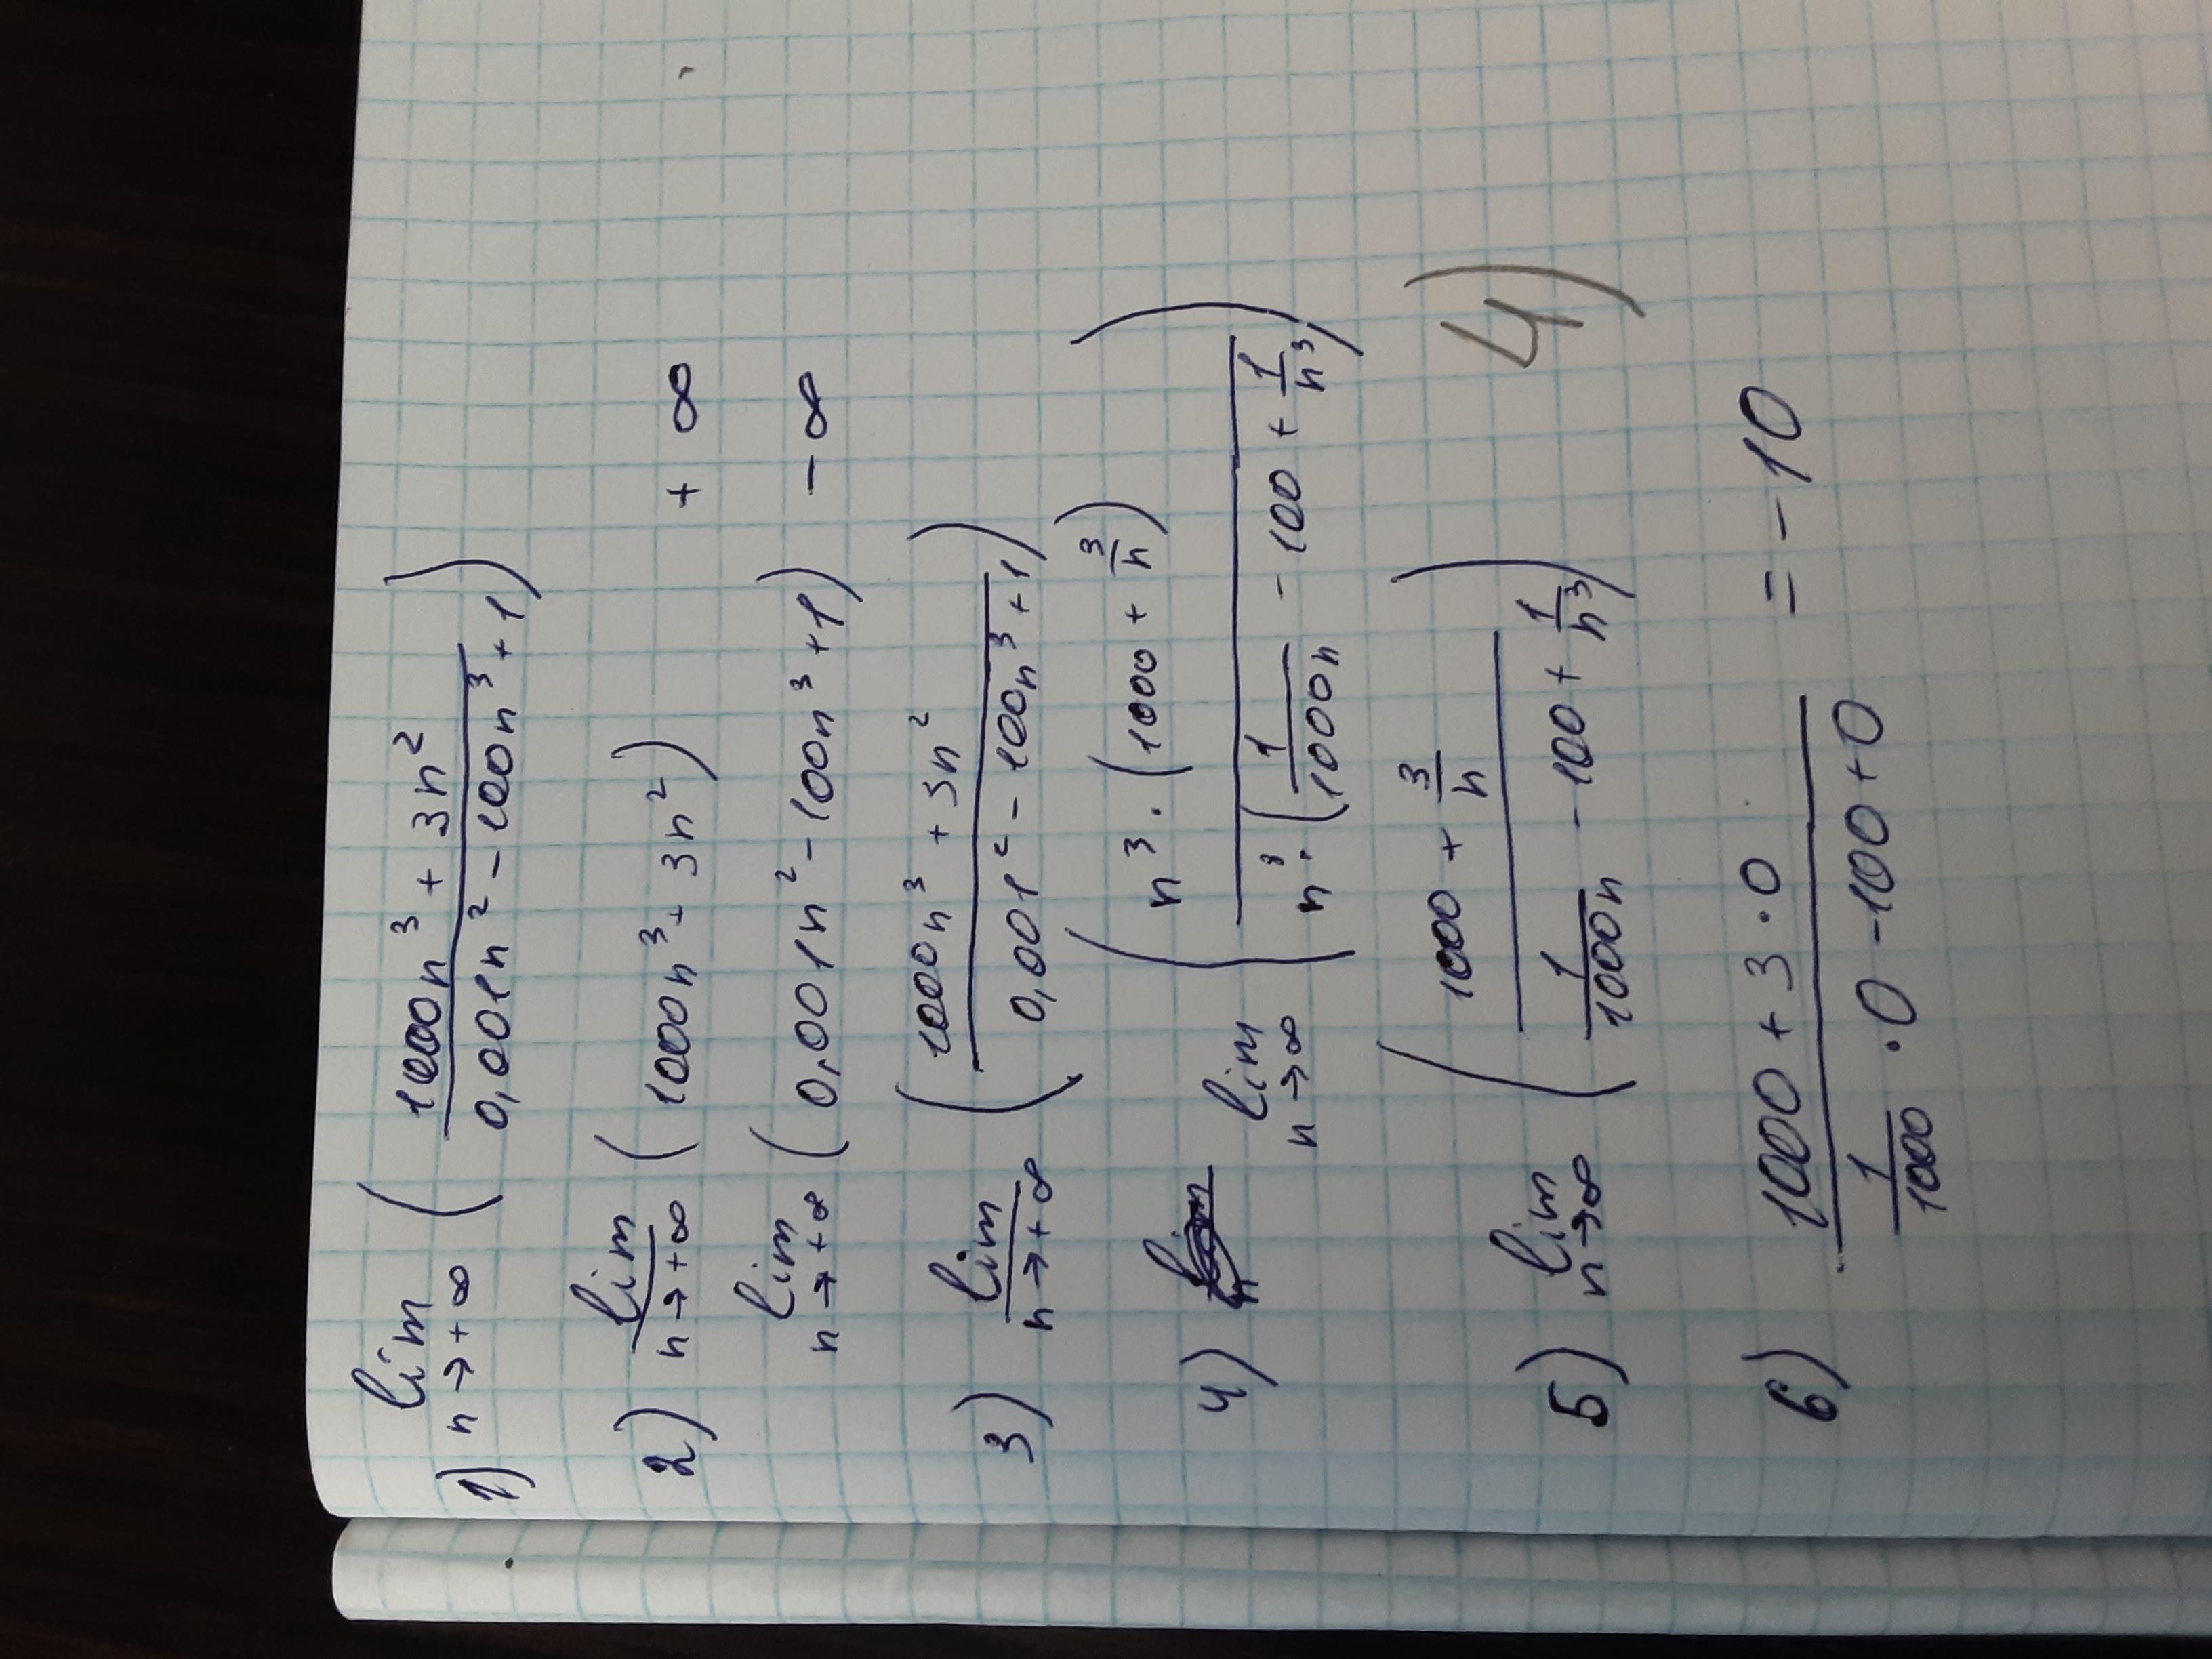 1) lim n→+∞ ( (1000n³ + 3n²) / (0,001n² - 100n³ + 1) )
2) lim n→+∞ (1000n³ + 3n²) + ∞
lim n→+∞ (0,001n² - 100n³ + 1) - ∞
3) lim n→+∞ ( (1000n³ + 3n²) / (0,001² - 100n³ + 1) )
4) lim n→∞ ( n³·(1000 + 3/n) / n³·(1/1000n - 100 + 1/n³) )
5) lim n→∞ ( (1000 + 3/n) / (1/1000n - 100 + 1/n³) )
4)
6) (1000 + 3·0) / (1/1000 · 0 - 100 + 0) = -10